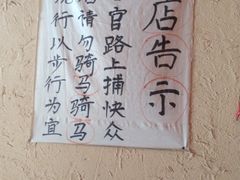 店告示
官路上捕快众
请勿骑马骑马
行以步行为宜